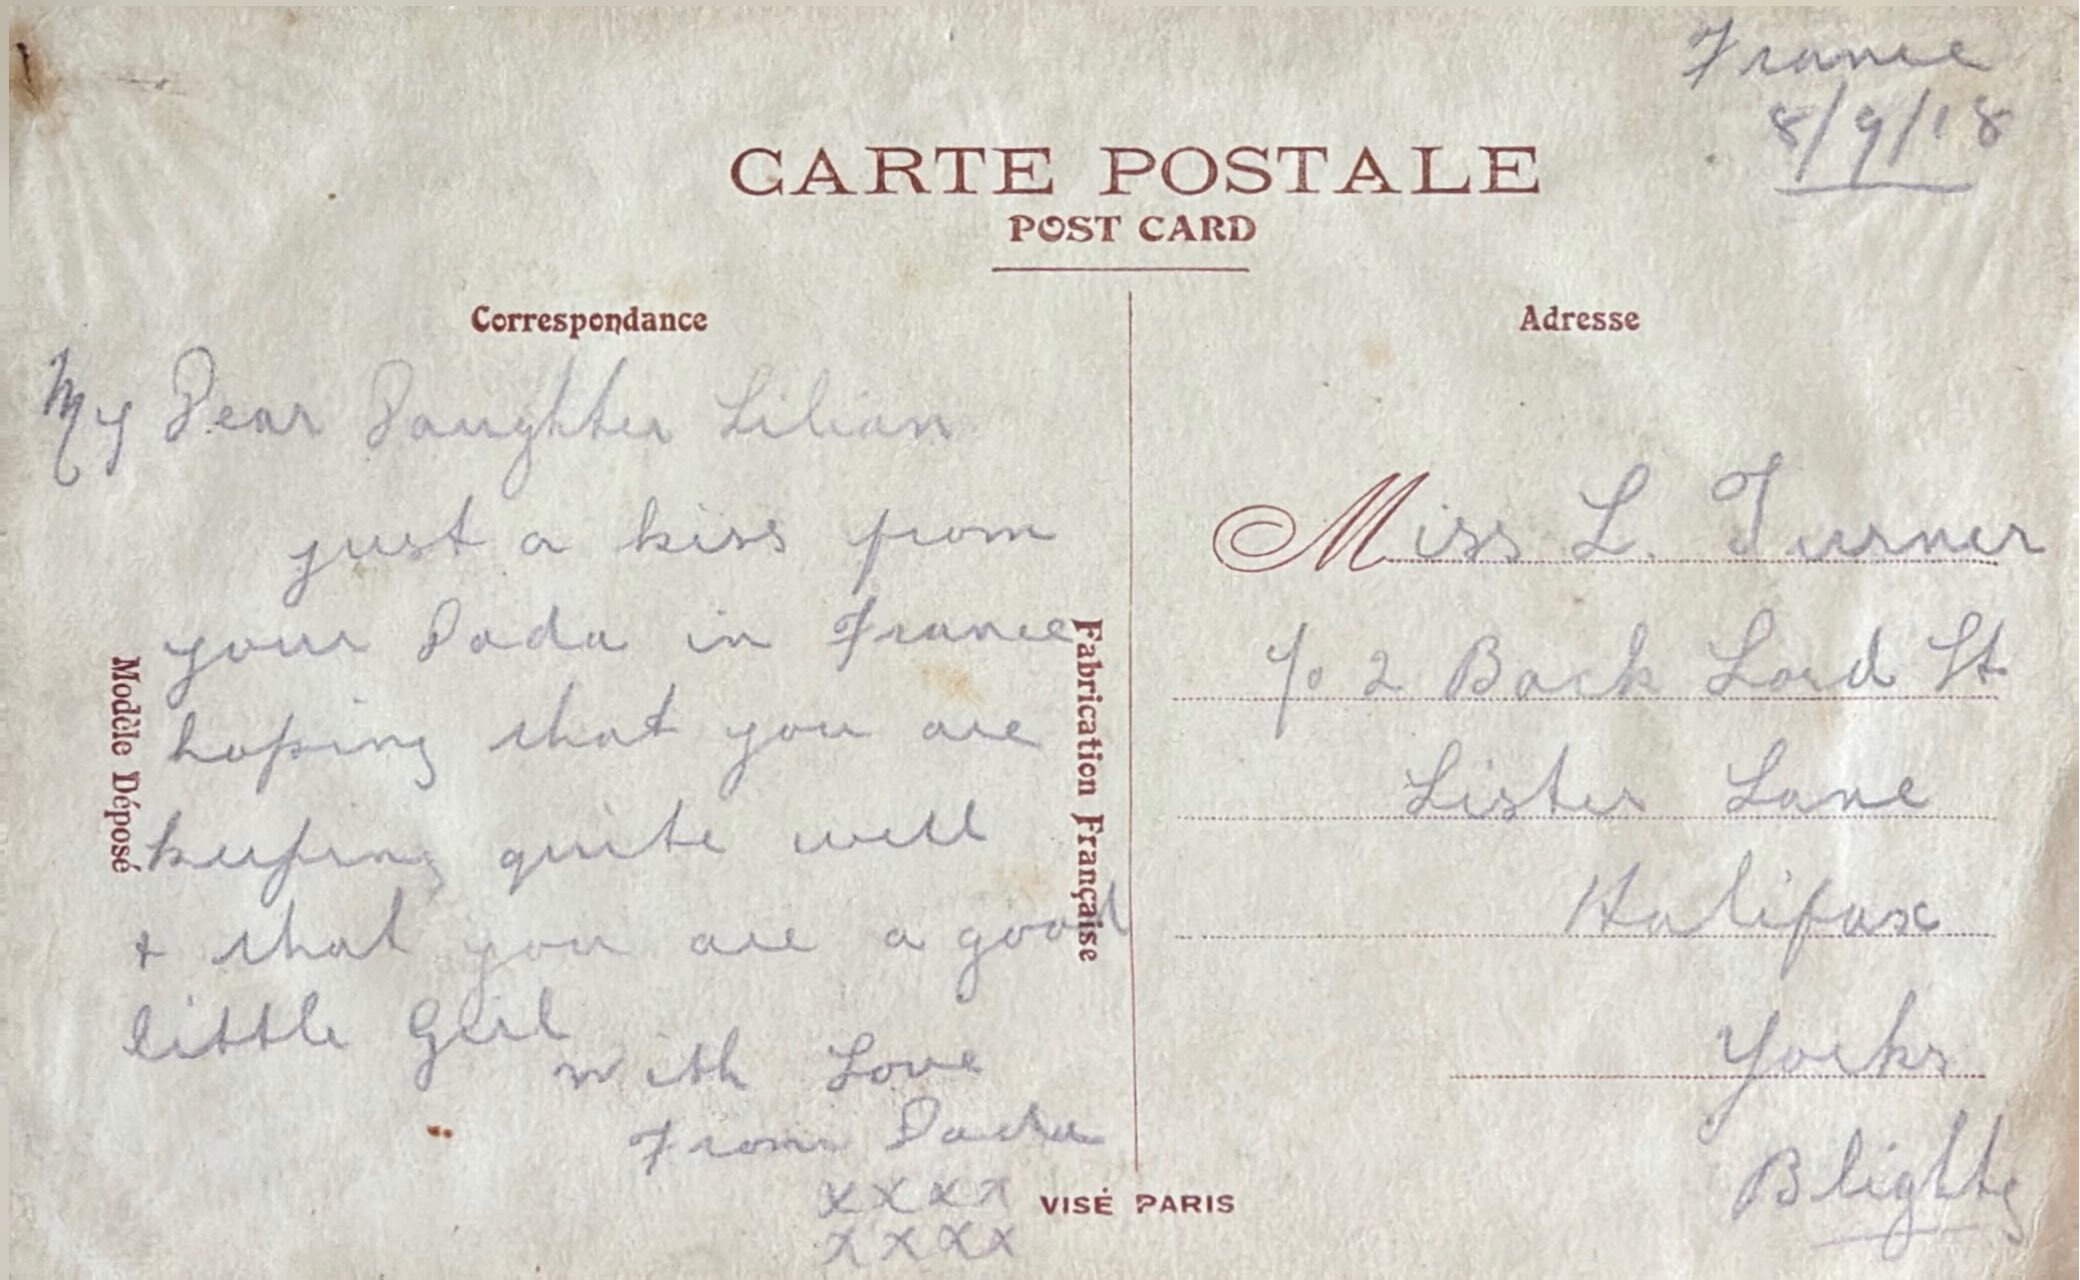 France
8/9/18
CARTE POSTALE
POST CARD
Correspondance
My Dear Daughter Lilian
just a kiss from
your Dada in France
hoping that you are
keeping quite well
+ that you are a good
little Girl
with Love
From Dada
xxxx
xxxx
Modèle Déposé
Fabrication Française
VISÉ PARIS
Adresse
Miss L. Turner
c/o 2 Back Lord St
Lister Lane
Halifax
Yorks
Blighty